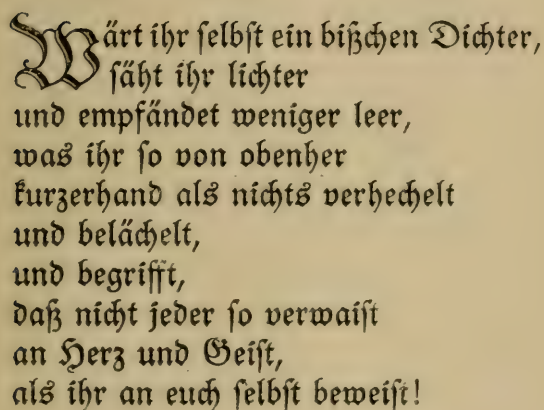 Wärt ihr selbst ein bißchen Dichter,
säht ihr lichter
und empfändet weniger leer,
was ihr so von obenher
kurzerhand als nichts verhechelt
und belächelt,
und begrifft,
daß nicht jeder so verwaist
an Herz und Geist,
als ihr an euch selbst beweist!